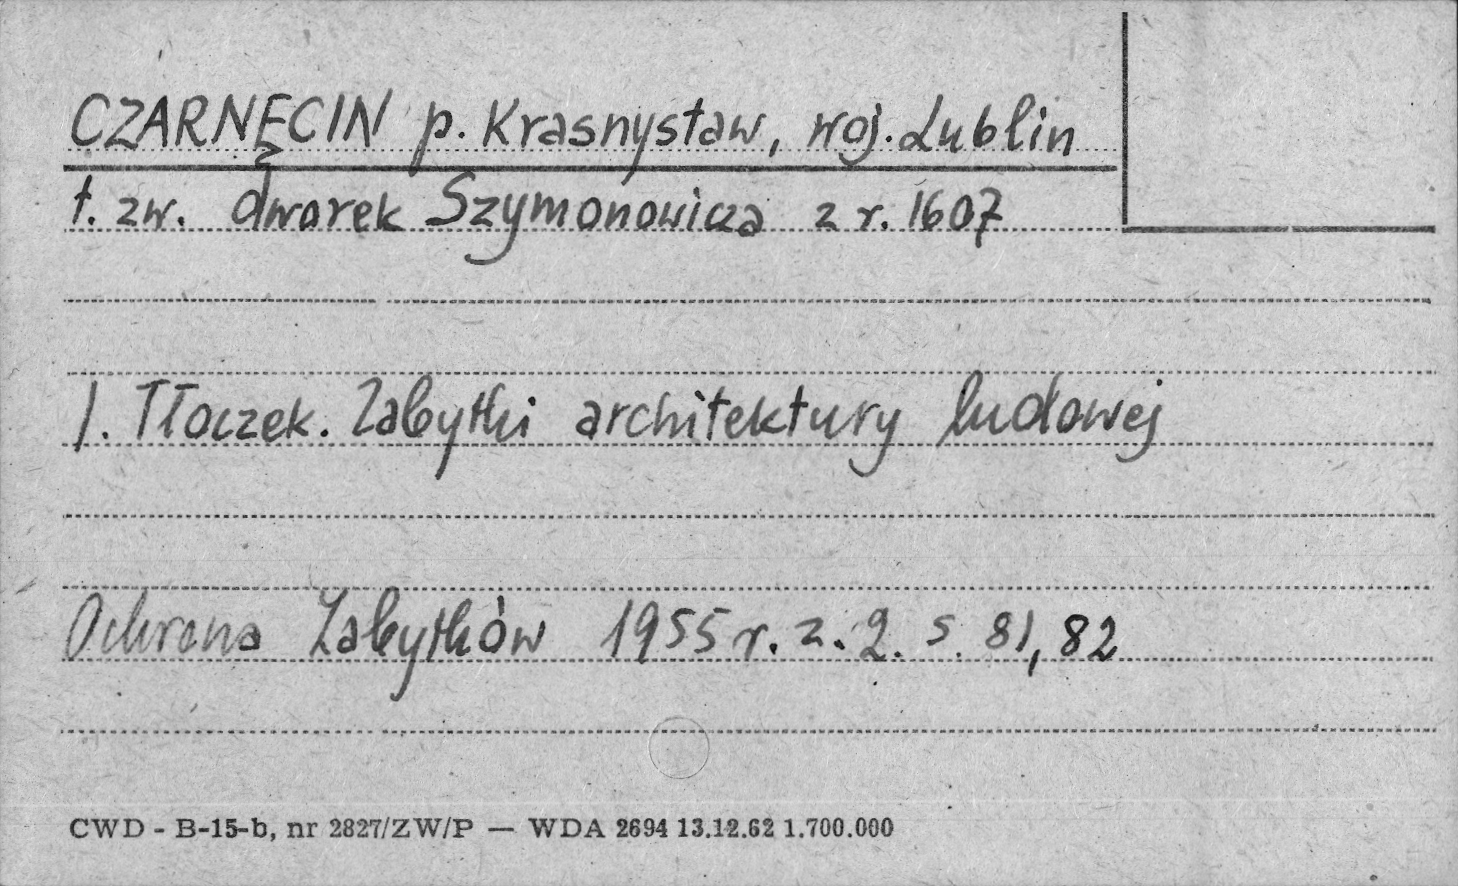 CZARNĘCIN p. Krasnystaw, woj. Lublin
t. zw. dworek Szymonowicza z r. 1607
I. Tłoczek. Zabytki architektury ludowej
Ochrona Zabytków 1955 r. z. 2. s. 81, 82
CWD - B-15-b, nr 2827/ZW/P — WDA 2694 13.12.62 1.700.000